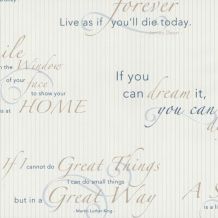 forever
Live as if you'll die today.
James Dean
ile
Window
n the
of your
face
to show your
is at
HOME
If you
can dream it,
you can
d
If I cannot do Great Things
I can do small things
but in a Great Way
Martin Luther King
A S
is a h